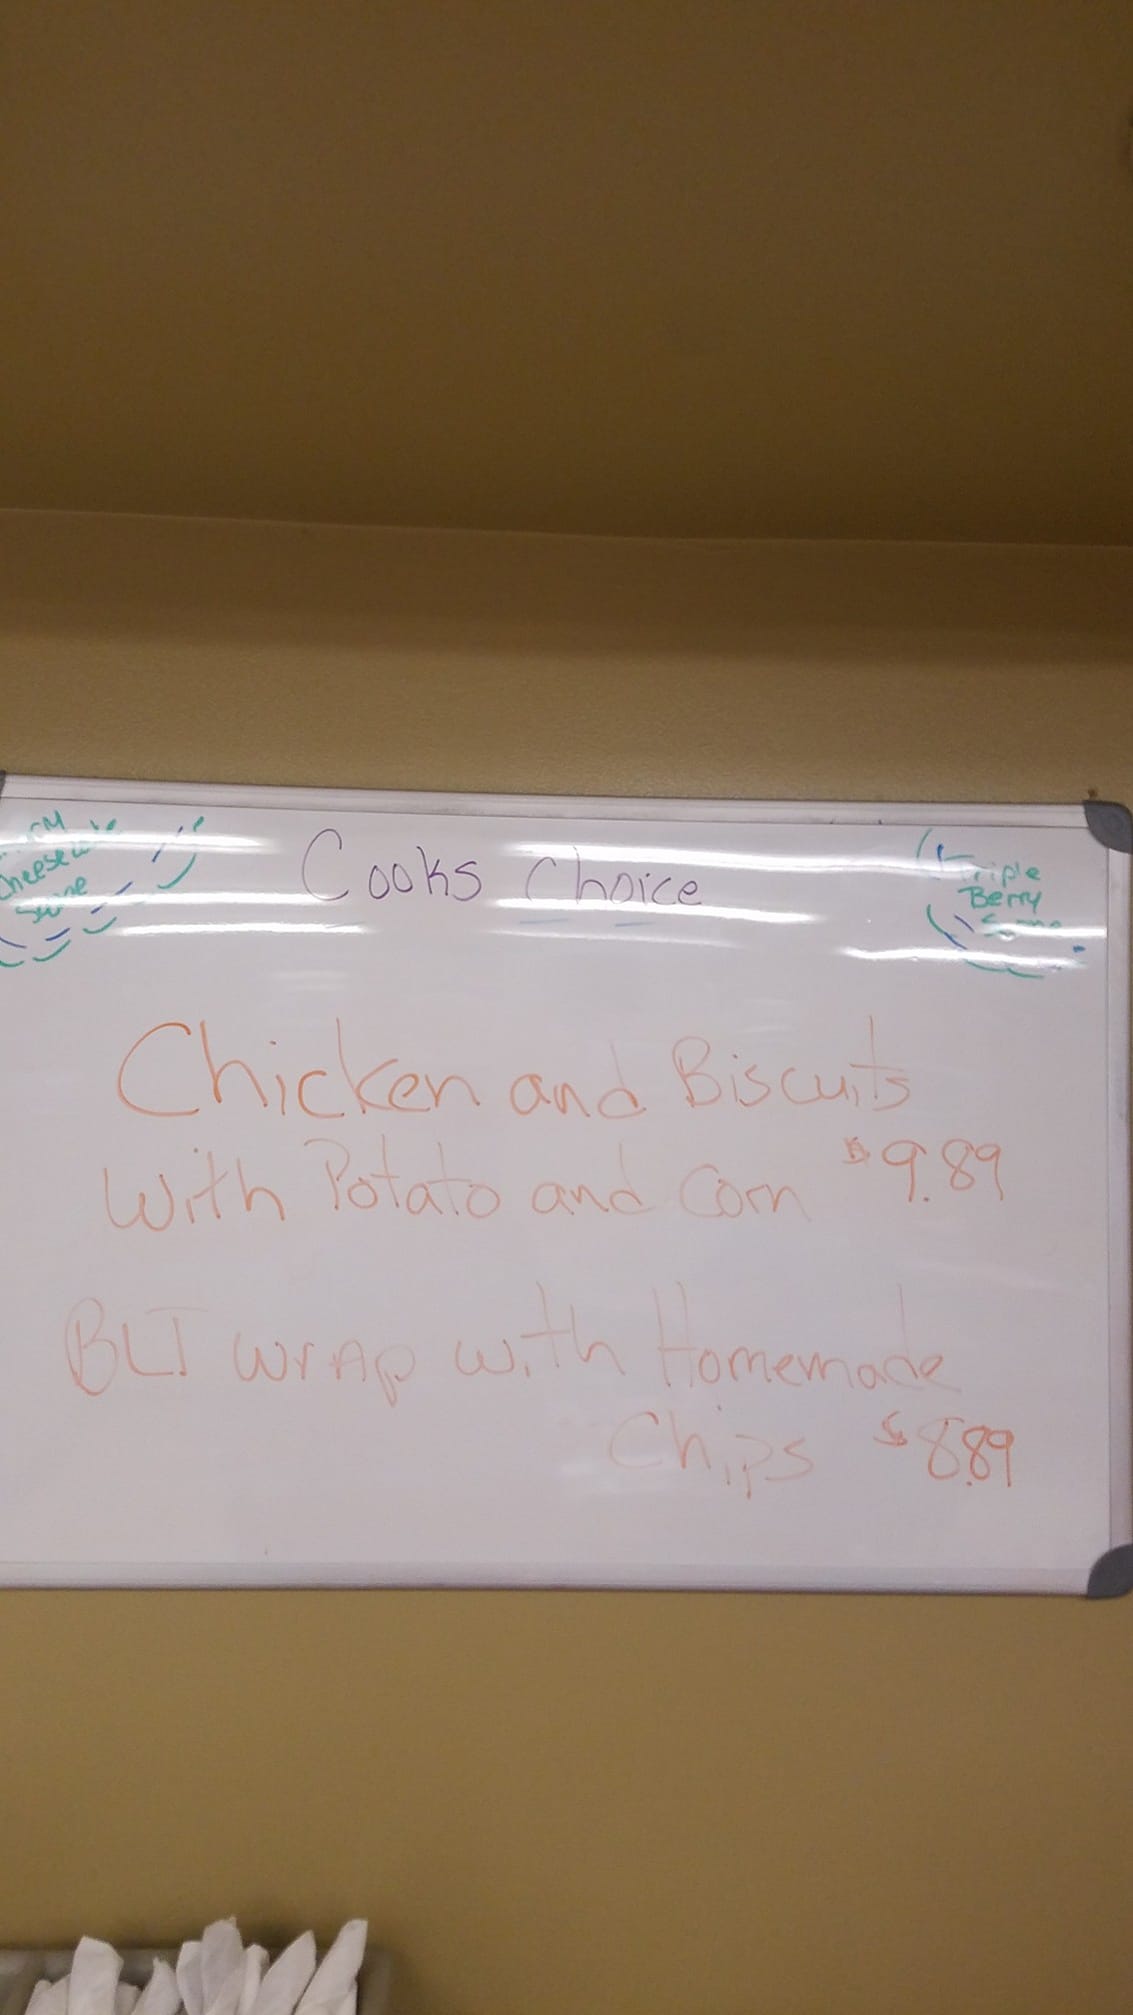 Cooks Choice
Triple
Berry
Chicken and Biscuits
with Potato and Corn $9.89
BLT wrap with Homemade
Chips $8.89